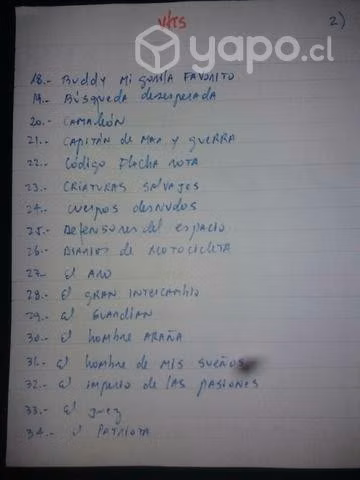 VHS
2)
yapo.cl
18.- Buddy Mi gorila FAVORITO
19.- Búsqueda desesperada
20.- CAMALEÓN
21.- CAPITÁN DE MAR y guerra
22.- Código Flecha ROTA
23.- CRIATURAS SALVAJES
24.- cuerpos desnudos
25.- Defensores del espacio
26.- DIARIOS de MOTOCICLETA
27.- El AÑO
28.- El GRAN INTERCAMBIO
29.- El GUARDIÁN
30.- El hombre ARAÑA
31.- El hombre de MIS SUEÑOS
32.- El imperio de LAS PASIONES
33.- El juez
34.- El PATRIOTA